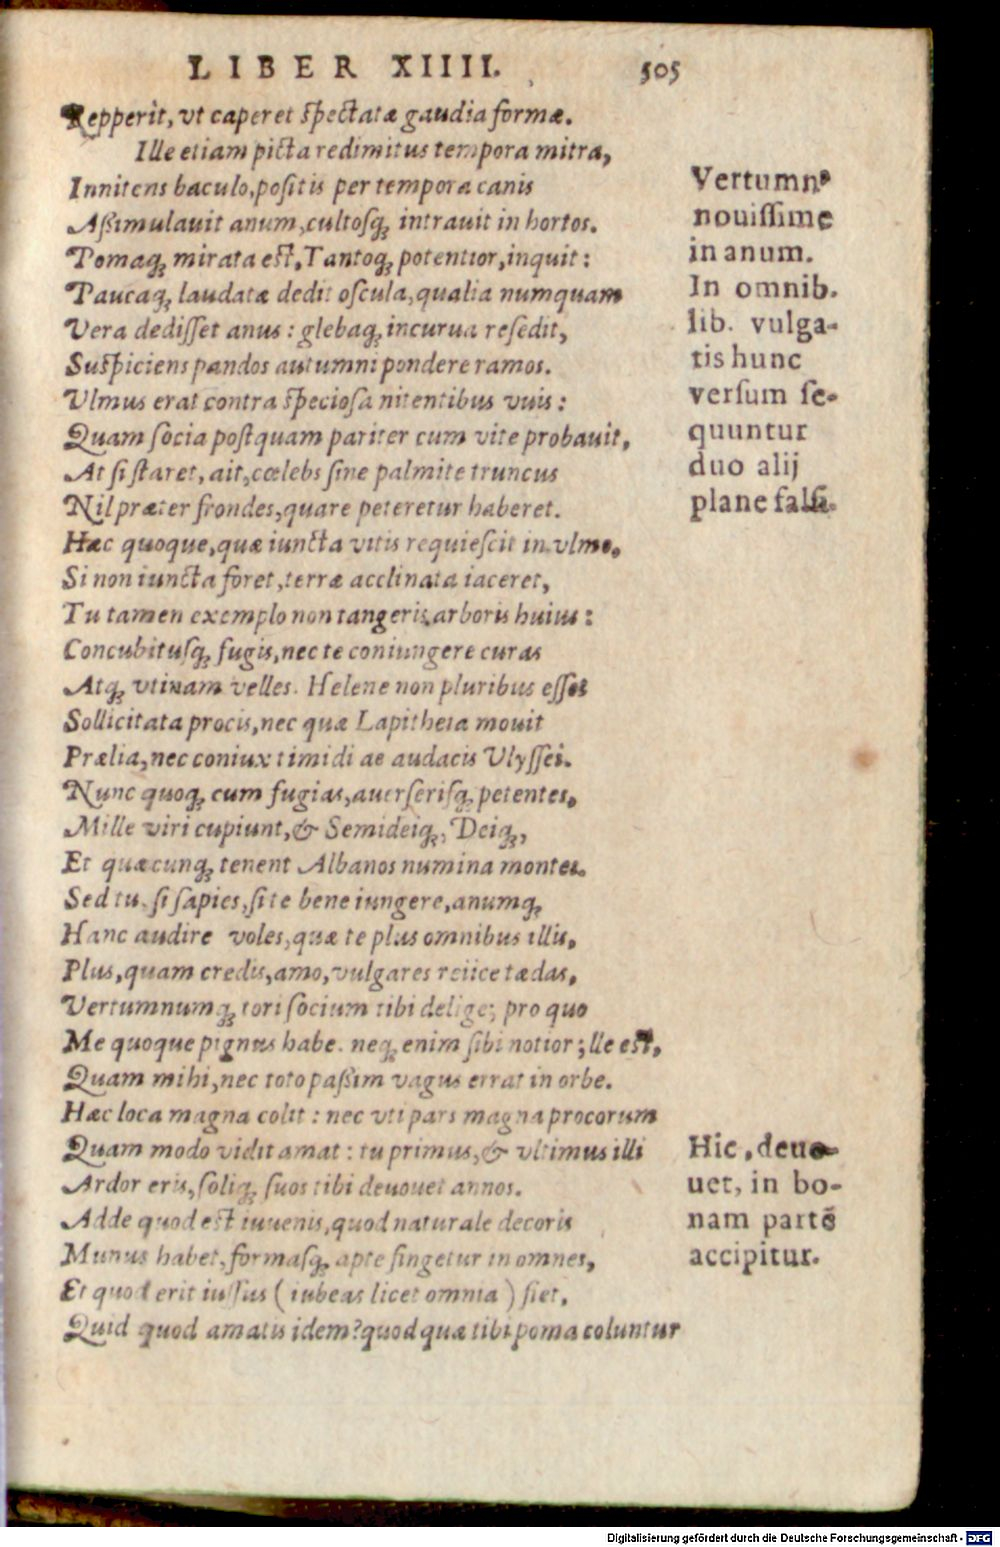 LIBER XIIII. 505
Repperit, vt caperet spectatæ gaudia formæ.
Ille etiam picta redimitus tempora mitra,
Innitens baculo, positis per tempora canis
Aßimulauit anum, cultosq́; intrauit in hortos.
Pomaq́; mirata est, Tantoq́; potentior, inquit:
Paucaq́; laudatæ dedit oscula, qualia numquam
Vera dedisset anus: glebaq́; incurua resedit,
Suspiciens pandos autumni pondere ramos.
Vlmus erat contra speciosa nitentibus vuis:
Quam socia postquam pariter cum vite probauit,
At si staret, ait, cœlebs sine palmite truncus
Nil præter frondes, quare peteretur haberet.
Hæc quoque, quæ iuncta vitis requiescit in vlmo,
Si non iuncta foret, terræ acclinata iaceret,
Tu tamen exemplo non tangeris arboris huius:
Concubitusq́; fugis, nec te coniungere curas
Atq́; vtinam velles. Helene non pluribus esset
Sollicitata procis, nec quæ Lapitheia mouit
Prælia, nec coniux timidi ae audacis Vlyssei.
Nunc quoq́; cum fugias, auerserisq́; petentes,
Mille viri cupiunt, & Semideiq́;, Deiq́;,
Et quæcunq́; tenent Albanos numina montes.
Sed tu, si sapies, si te bene iungere, anumq́;
Hanc audire voles, quæ te plus omnibus illis,
Plus, quam credis, amo, vulgares reiice tædas,
Vertumnumq́; tori socium tibi delige; pro quo
Me quoque pignus habe. neq́; enim sibi notior ille est,
Quam mihi, nec toto paßim vagus errat in orbe.
Hæc loca magna colit: nec vti pars magna procorum
Quam modo vidit amat: tu primus, & vltimus illi
Ardor eris, soliq́; suos tibi deuouet annos.
Adde quod est iuuenis, quod naturale decoris
Munus habet, formasq́; apte fingetur in omnes,
Et quod erit iussus (iubeas licet omnia) fiet.
Quid quod amatis idem? quod quæ tibi poma coluntur
Vertumn9
nouissime
in anum.
In omnib.
lib. vulga-
tis hunc
versum se-
quuntur
duo alij
plane falsi.
Hic, deuo-
uet, in bo-
nam partẽ
accipitur.
Digitalisierung gefördert durch die Deutsche Forschungsgemeinschaft - DFG